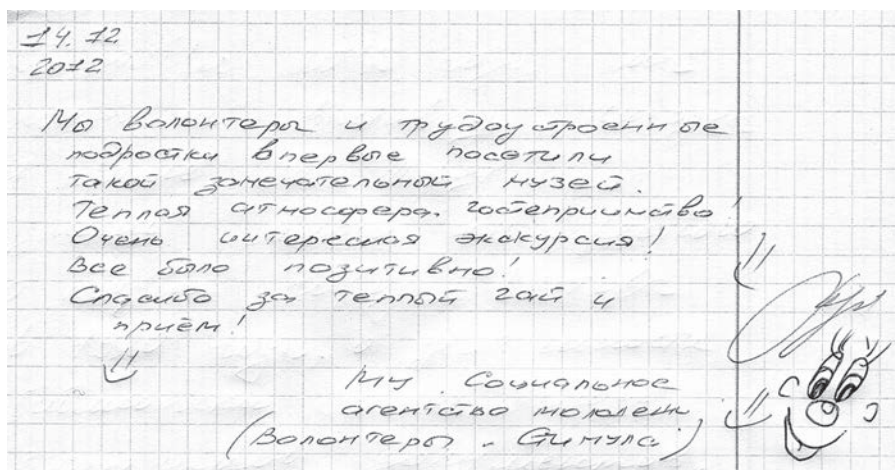 14.12
2012
Мы волонтеры и трудоустроенные
подростки впервые посетили
такой замечательный музей.
Теплая атмосфера. гостеприимство!
Очень интересная экскурсия!
Все было позитивно!
Спасибо за теплый чай и
приём!
МУ Социальное
агентство молодежи
(Волонтеры "Стимула")